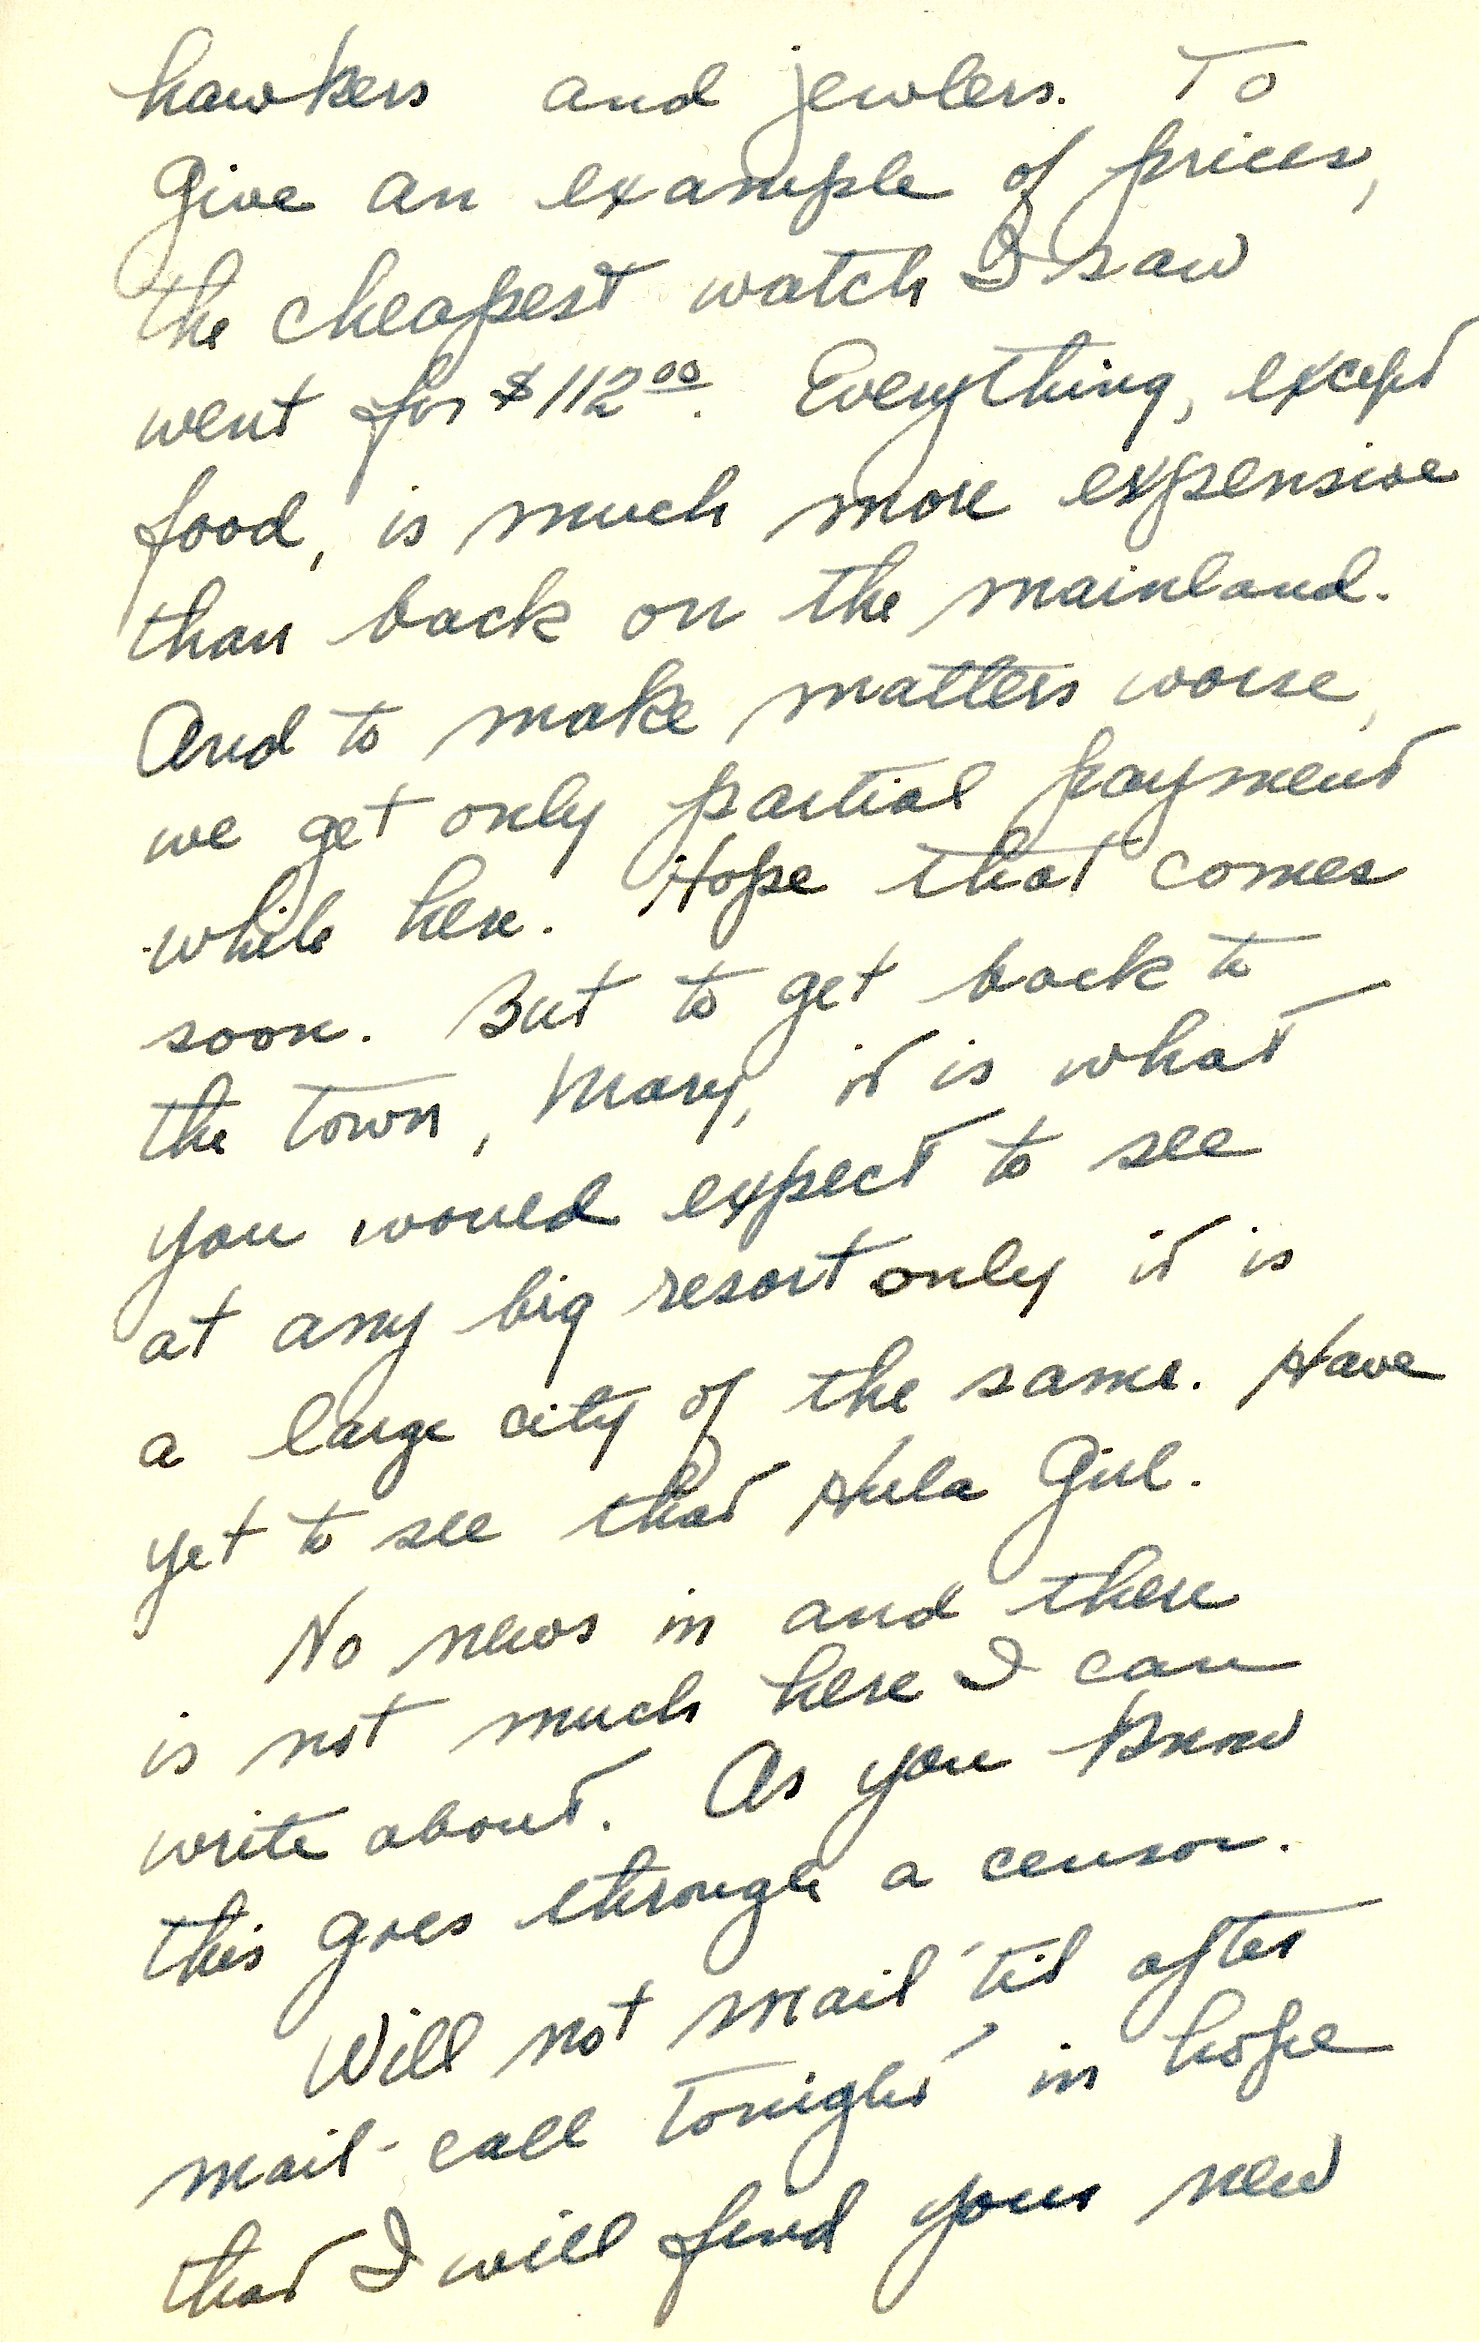 hawkers and jewlers. To
Give an example of prices,
the cheapest watch I saw
went for $112.00. Everything, except
food, is much more expensive
than back on the mainland.
And to make matters worse,
we get only partial payment
while here. Hope that comes
soon. But to get back to
the town, Mary, it is what
you would expect to see
at any big resort only it is
a large city of the same. Have
yet to see that Hula Girl.
No news in and there
is not much here I can
write about. As you know
this goes through a censor.
Will not mail 'til after
mail-call tonight in hope
that I will find your new